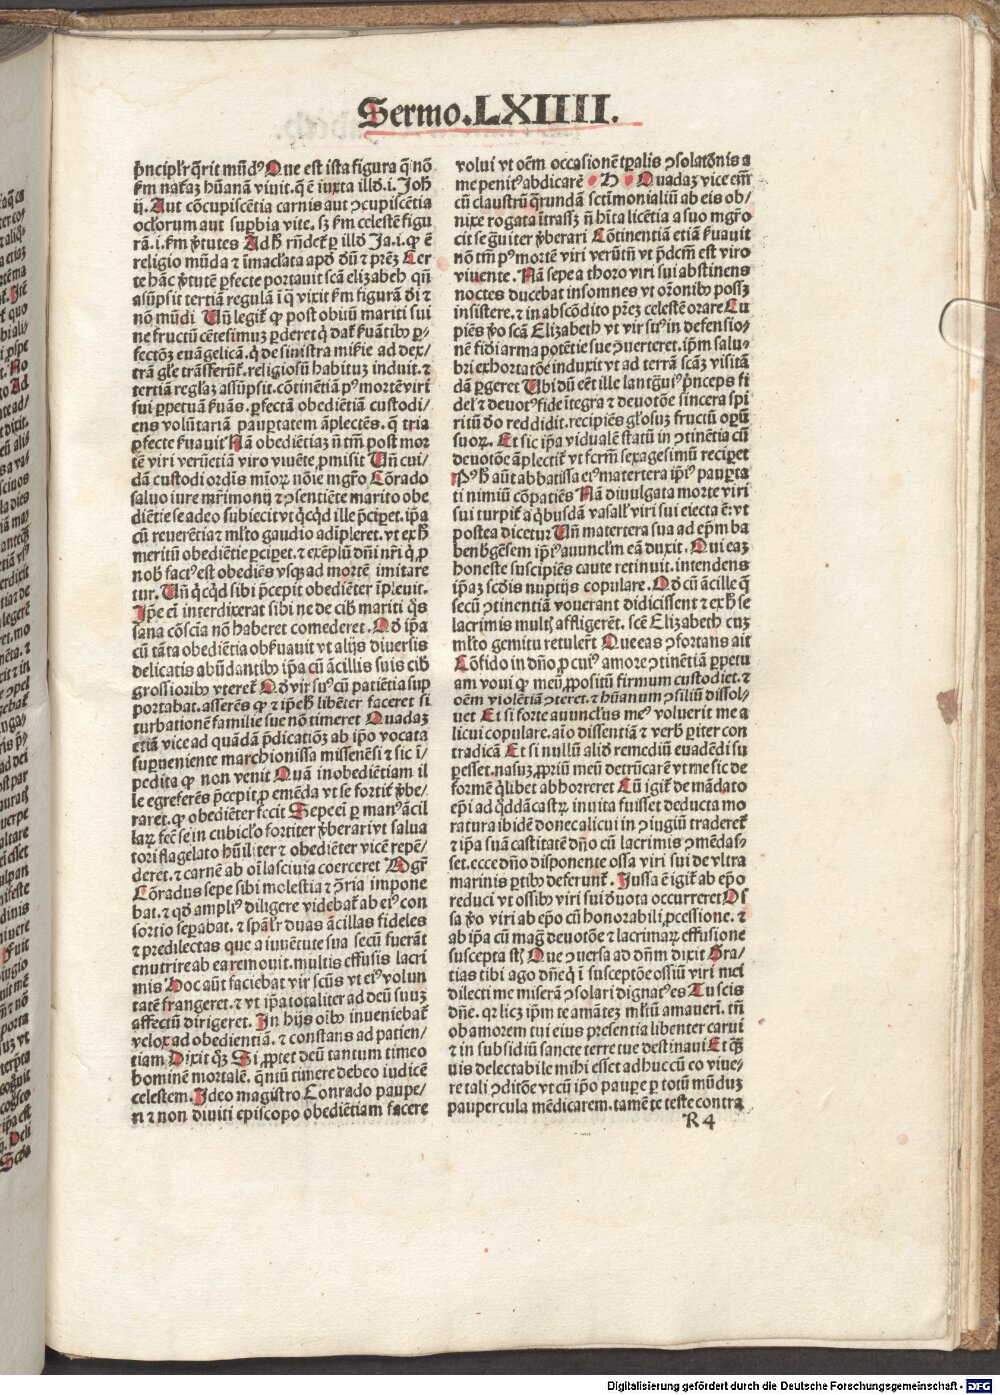 Sermo.LXIIII.
p̃ncipl'r q̃rit mũdꝰ Que est ista figura q̃ nõ
ẜm naťaʒ hũanã viuit. q̃ ẽ iuxta illď.i. Joh̃
ij. Aut cõcupiscẽtia carnis aut ꝯcupiscẽtia
oculorum aut suꝑbia vite. sʒ ẜm celestẽ figu
rã.i. ẜm ṽtutes Ad h̃ rñdet̃ ꝑ illď Ja.i. ꝙ ẽ
religio mũda ⁊ ĩmaclata apď dũ ⁊ prẽʒ Cer
te hãc ṽtutẽ ꝑfecte portauit scã elizabeh qñ
asũpsit tertiã regulã i q̃ vixit ẜm figurã di ⁊
nõ mũdi Uñ legit̃ ꝙ post obitũ mariti sui
ne fructũ cẽtesimuʒ ꝑderet q̇ dat̃ ẜuãtibꝰ ꝑ-
fectõʒ euãgelicã. q̇ de sinistra miẜie ad dex/
trã gl'e trãsferũt̃. religiosũ habituʒ induit. ⁊
tertiã reglaʒ assũpsit. cõtinẽtiã pꝰ mortẽ viri
sui ꝑpetuã ẜuãs. ꝑfectã obediẽtiã custodi/
ens volũtariã pauꝑtatem ãplectẽs. q̃ tria
ꝑfecte ẜuauit Nã obediẽtiaʒ nõ tm̃ post mor
tẽ viri verũetiã viro viuẽte ꝓmisit Uñ cui/
dã custodi ordĩs mĩoꝝ nõie mgr̃o Cõrado
saluo iure mr̃imonij ⁊ ꝯsentiẽte marito obe
diẽtie se adeo subiecit vt q̇cq̇d ille p̃cip̃et. ip̃a
cũ reuerẽtia ⁊ ml'to gaudio adĩpleret. vt ex h̃
meritũ obediẽtie ꝑcip̃et. ⁊ exẽplũ dñi nr̃i q̇ ꝓ
nob̃ factꝰ est obediẽs vsqʒ ad mortẽ imitare
tur. Uñ q̇cq̇d sibi p̃cepit obediẽter ĩpleuit.
Ip̃e eñ interdixerat sibi ne de cib̃ mariti q̃s
sana cõscĩa nõ haberet comederet. Qď ip̃a
cũ tãta obediẽtia obẜuauit vt alijs diuersis
delicatis abũdantibꝰ ip̃a cũ ãcillis suis cib̃
grossioribꝰ vteret̃ Qď vir suꝰ cũ patiẽtia sup
portabat. asserẽs ꝙ ⁊ ip̃e h̃ libẽter faceret si
turbationẽ familie sue nõ timeret Quadaʒ
etiã vice ad quãdã p̃dicatiõʒ ab ip̃o vocata
suꝑueniente marchionissa missenẽsi ⁊ sic ĩ/
pedita ꝙ non venit Quã inobediẽtiam il
le egre ferẽs p̃cepit ꝓ emẽda vt se fortit̃ ṽbe/
raret. ꝙ obediẽter fecit Sepe eñ ꝑ manꝰ ãcil
laꝝ fec̃ se in cubiclo fortiter ṽberari vt salua
tori flagelato hũiliter ⁊ obediẽter vicẽ repẽ/
deret. ⁊ carnẽ ab oĩ lasciuia coerceret Mgr̃
Cõradus sepe sibi molestia ⁊ ꝯ̃ria impone
bat. ⁊ qď ampliꝰ diligere videbat̃ ab eiꝰ con
sortio seꝑabat. ⁊ sp̃al'r duas ãcillas fideles
⁊ predilectas que a iuuẽtute sua secũ fuerãt
enutrite ab ea remouit. multis effusis lacri
mis Hoc aũt faciebat vir scũs vt eiꝰ volun
tatẽ frangeret. ⁊ vt ip̃a totaliter ad deũ suuʒ
affectũ dirigeret. In hijs oĩbꝰ inueniebat̃
velox ad obedientiã. ⁊ constans ad patien/
tiam Dixit q̃ʒ Si ꝓpter deũ tantum timeo
hominẽ mortalẽ. q̃ntũ timere debeo iudicẽ
celestem. Ideo magistro Conrado pauꝑe/
ri ⁊ non diuiti episcopo obediẽtiam facere
volui vt oẽm occasionẽ tꝑalis ꝯsolatõnis a
me penitꝰ abdicarẽ · H · Quadaʒ vice em̃
cũ claustrũ q̃rundã sctĩmonialiũ ab eis ob/
nixe rogata ĩtrassʒ nõ h̃ita licẽtia a suo mgr̃o
cit se g̃uiter ṽberari Cõtinentiã etiã ẜuauit
nõ tm̃ pꝰ mortẽ viri verũtñ vt p̃dcm̃ est viro
viuente. Nã sepe a thoro viri sui abstinens
noctes ducebat insomnes vt orõnibꝰ possʒ
insistere. ⁊ in abscõdito pr̃eʒ celestẽ orare Cu
piẽs ṽo scã Elizabeth vt vir suꝰ in defensio-
nẽ fidei arma potẽtie sue ꝯuerteret. ip̃m salu-
bri exhortatõe induxit vt ad terrã scãʒ visitã
dã ꝑgeret Ubi dũ eẽt ille lantg̃uiꝰ p̃nceps fi
del' ⁊ deuotꝰ fide ĩtegra ⁊ deuotõe sincera spi
ritũ deo reddidit. recipiẽs gl'osuʒ fructũ oꝑũ
suoꝝ. Et sic ip̃a vidualẽ statũ in ꝯtinẽtia cũ
deuotõe ãplectit̃ vt fcm̃ sexagesimũ recip̃et
Pꝰ h̃ aũt abbatissa eiꝰ matertera ip̃iꝰ pauꝑta
ti nimiũ cõpatiẽs Nã diuulgata morte viri
sui turpit̃ a q̇busdã vasall' viri sui eiecta ẽ: vt
postea dicetur Uñ matertera sua ad ep̃m ba
benb̃gẽsem ip̃iꝰ auuncl'm eã duxit. Qui eaʒ
honeste suscipiẽs caute retinuit. intendens
ip̃aʒ scďis nuptijs copulare. Qď cũ ãcille q̃
secũ ꝯtinentiã vouerant didicissent ⁊ ex h̃ se
lacrimis multʒ affligerẽt. scẽ Elizabeth cuʒ
ml'to gemitu retuler̃t Que eas ꝯfortans ait
Cõfido in dño ꝓ cuiꝰ amore ꝯtinẽtiã ꝑpetu
am voui ꝙ meũ ꝓpositũ firmum custodiet. ⁊
oẽm violẽtiã ꝯteret. ⁊ hũanum ꝯsiliũ dissol-
uet Et si forte auuncl'us meꝰ voluerit me a
licui copulare. aĩo dissentiã ⁊ verb̃ ꝑiter con
tradicã Et si nullũ aliď remediũ euadẽdi su
ꝑesset. nasuʒ ꝓpriũ meũ detrũcarẽ vt me sic de
formẽ q̃libet abhorreret Cũ igit̃ de mãdato
ep̃i ad qďdã castꝝ inuita fuisset deducta mo
ratura ibidẽ donec alicui in ꝯiugiũ traderet̃
⁊ ip̃a suã castitatẽ dño cũ lacrimis ꝯmẽdas-
set. ecce dño disponente ossa viri sui de vltra
marinis ꝑtibꝰ deferunt̃. Jussa ẽ igit̃ ab ep̃o
reduci vt ossibꝰ viri sui ďuota occurreret Os
sa ṽo viri ab ep̃o cũ honorabili ꝓcessione. ⁊
ab ip̃a cũ mag̃ deuotõe ⁊ lacrimaꝝ effusione
suscepta st̃ Que ꝯuersa ad dñm dixit Gra-
tias tibi ago dñe q̇ ĩ susceptõe ossiũ viri mei
dilecti me miserã ꝯsolari dignatꝰ es Tu scis
dñe. qr licʒ ip̃m te amãteʒ ml'tũ amaueri. tñ
ob amorem tui eius presentia libenter carui
⁊ in subsidiũ sancte terre tue destinaui Et q̃ʒ
uis delectabile mihi esset adhuc cũ eo viue-
re tali ꝯditõe vt cũ ip̃o pauꝑe ꝑ totũ mũduʒ
paupercula mẽdicarem. tamẽ te teste contra
R4
Digitalisierung gefördert durch die Deutsche Forschungsgemeinschaft - DFG